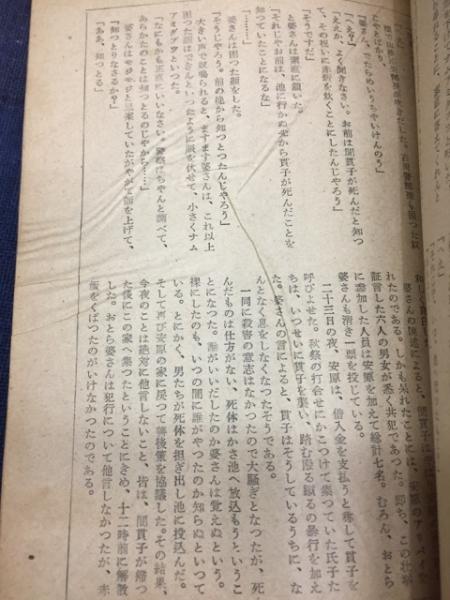 「ええか、よく聞きなさい。お前は間貫子が死んだと知つ
て、その祝いに赤飯を炊くことにしたんじやろう」
「そうですだ」
と婆さんは素直に頷いた。
「それじやお前は、池に行かぬ先から貫子が死んだことを
知つていたことになるな」
「………」
婆さんは困つた顔をした。
「そうじやろう。前の晩から知つとつたんじやろう」
大きい声で怒鳴られると、ますます婆さんは、これ以上
困つた顔はできんといつたように眼を伏せて、小さくナム
アミダブツといつた。
「なにもかも正直にいいなさい。警察はちやんと調べて、
あらかたのことは知つとるのじやから……」
婆さんはモジモジと思案していたがやがて顔を上げて、
「知つとりなさるか？」
「ああ、知つとる」
婆さんの陳述によると、間貫子は
れたのである。しかも呆れたことには、安原のアリバイを
証言した六人の男女が悉く共犯であつた。即ち、この壮挙
に参加した人員は安原を加えて総計七名。むろん、おとら
婆さんも清き一票を投じている。
二十三日の夜、安原は、借入金を支払うと称して貫子を
呼びよせた。秋祭の打合せにかこつけて集つていた氏子た
ちは、いつせいに貫子を襲い、踏む殴る蹴るの暴行を加え
た。婆さんの言によると、貫子はそうしているうちに、な
んとなく息をしなくなつたそうである。
一同に殺害の意志はなかつたので大騒ぎとなつたが、死
んだものは仕方がない、死体はかさ池へ放込もうというこ
とになつた。誰がいいだしたのか婆さんは覚えぬという。
裸にしたのも、いつの間に誰がやつたのか知らぬといつて
いる。とにかく、男たちが死体を担ぎ出し池に投込んだ。
そして再び安原の家に戻つて善後策を協議した。その結果、
今夜のことは絶対に他言しないこと、皆は、間貫子が帰つ
た後にこの家へ集つたということにきめ、十二時前に解散
した。おとら婆さんは犯行について他言しなかつたが、赤
飯をくばつたのがいけなかつたのである。